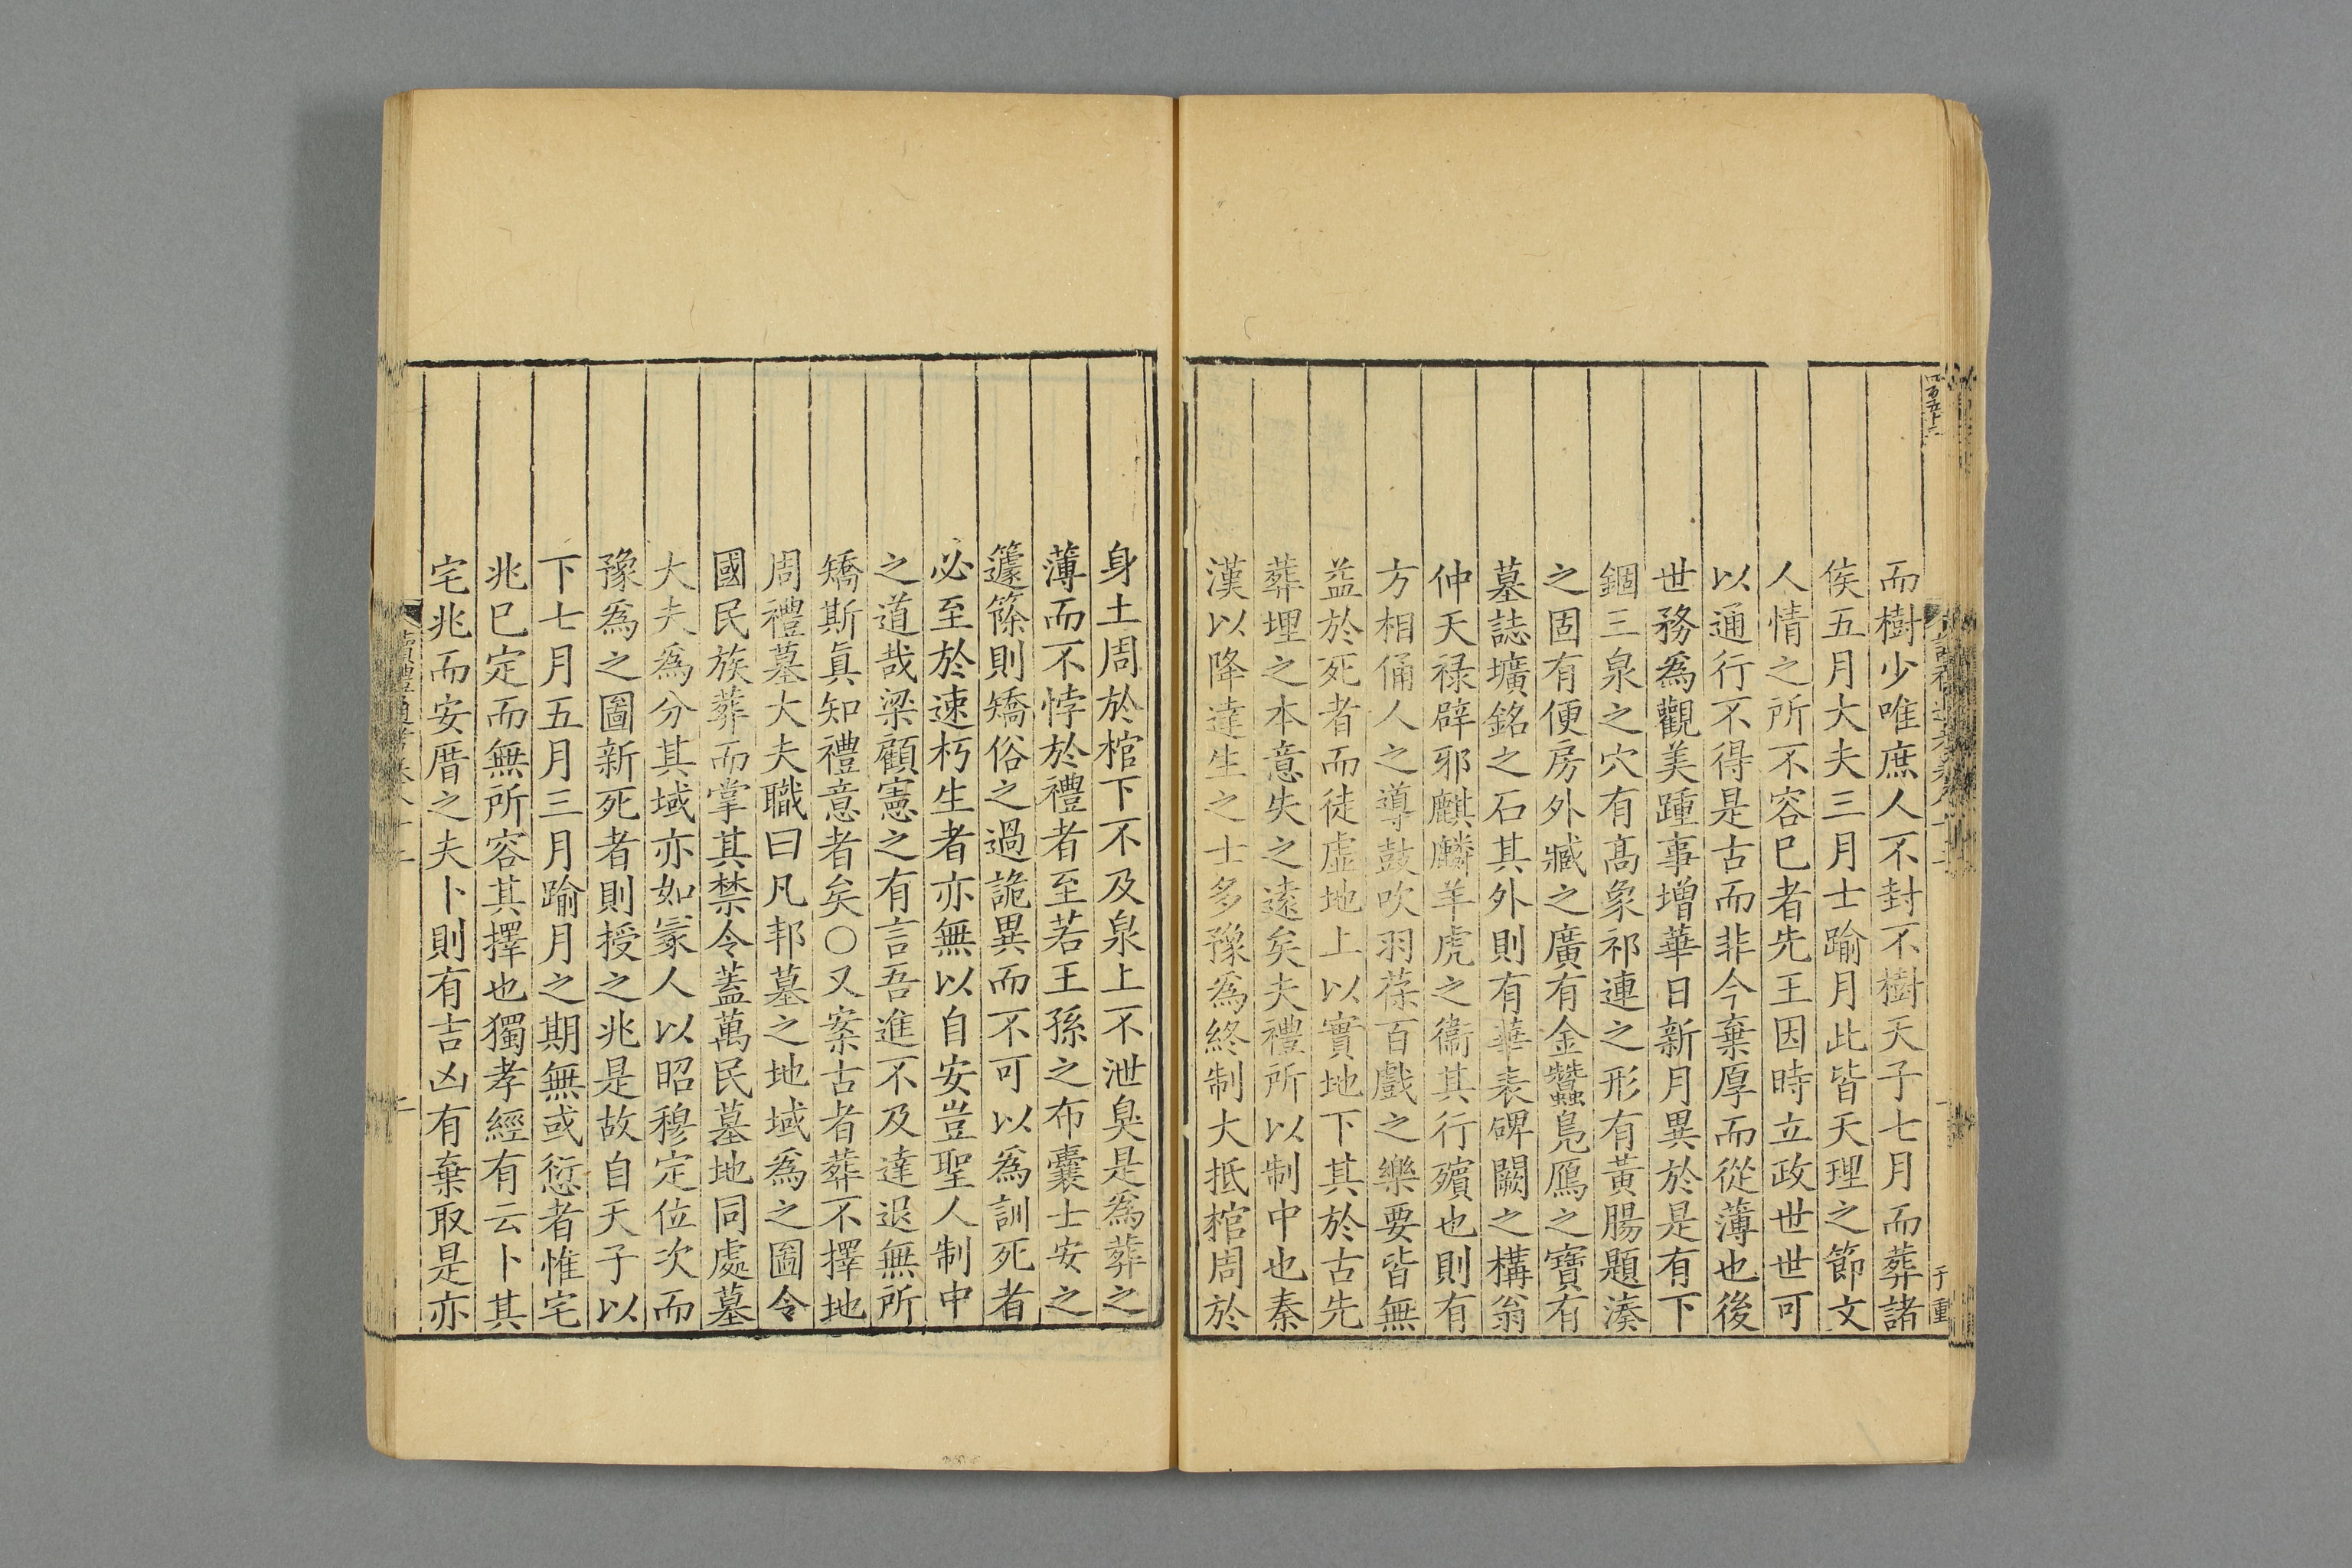 而樹少唯庶人不封不樹天子七月而葬諸
侯五月大夫三月士踰月此皆天理之節文
人情之所不容已者先王因時立政世世可
以通行不得是古而非今棄厚而從薄也後
世務爲觀美踵事增華日新月異於是有下
錮三泉之穴有髙象祁連之形有黃腸題湊
之固有便房外臧之廣有金蠶鳧鴈之寶有
墓誌壙銘之石其外則有華表碑闕之構翁
仲天禄辟邪麒麟羊虎之衞其行殯也則有
方相俑人之導鼓吹羽葆百戲之樂要皆無
益於死者而徒虛地上以實地下其於古先
葬埋之本意失之遠矣夫禮所以制中也秦
漢以降達生之士多豫爲終制大抵棺周於
于重
身土周於棺下不及泉上不泄臭是爲葬之
薄而不悖於禮者至若王孫之布囊士安之
籧篨則矯俗之過詭異而不可以爲訓死者
必至於速朽生者亦無以自安豈聖人制中
之道哉梁顧憲之有言吾進不及達退無所
矯斯眞知禮意者矣○又案古者葬不擇地
周禮墓大夫職曰凡邦墓之地域爲之圖令
國民族葬而掌其禁令蓋萬民墓地同處墓
大夫爲分其域亦如冢人以昭穆定位次而
豫爲之圖新死者則授之兆是故自天子以
下七月五月三月踰月之期無或愆者惟宅
兆已定而無所容其擇也獨孝經有云卜其
宅兆而安厝之夫卜則有吉凶有棄取是亦